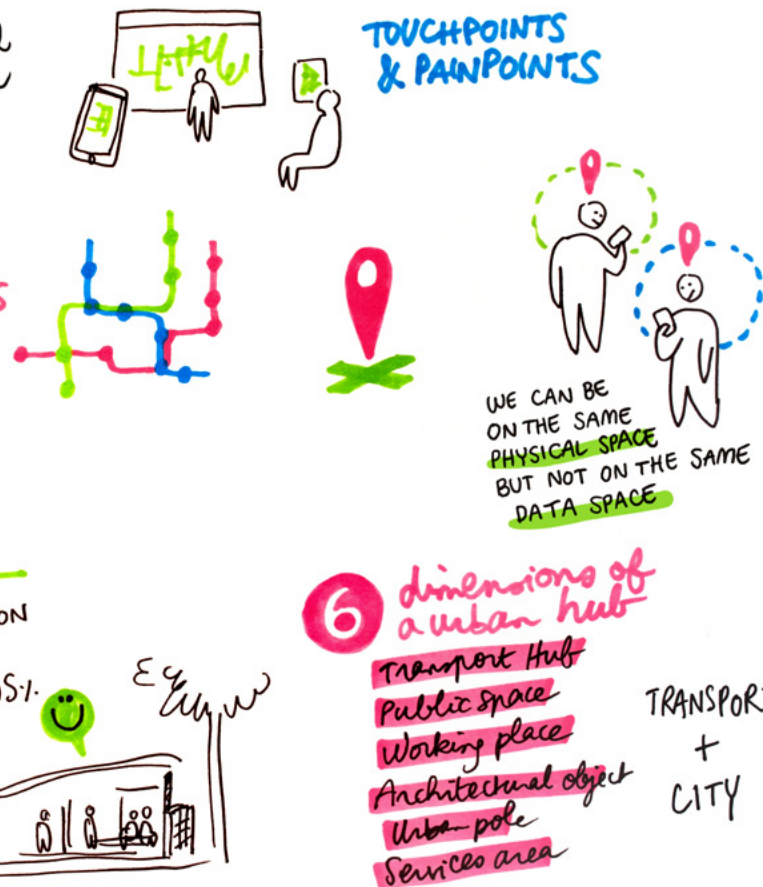 TOUCHPOINTS
& PAINPOINTS
WE CAN BE
ON THE SAME
PHYSICAL SPACE
BUT NOT ON THE SAME
DATA SPACE
6 dimensions of
a urban hub
Transport Hub
Public space
Working place
Architectural object
Urban pole
Services area
TRANSPOR
+
CITY
ON
5%.